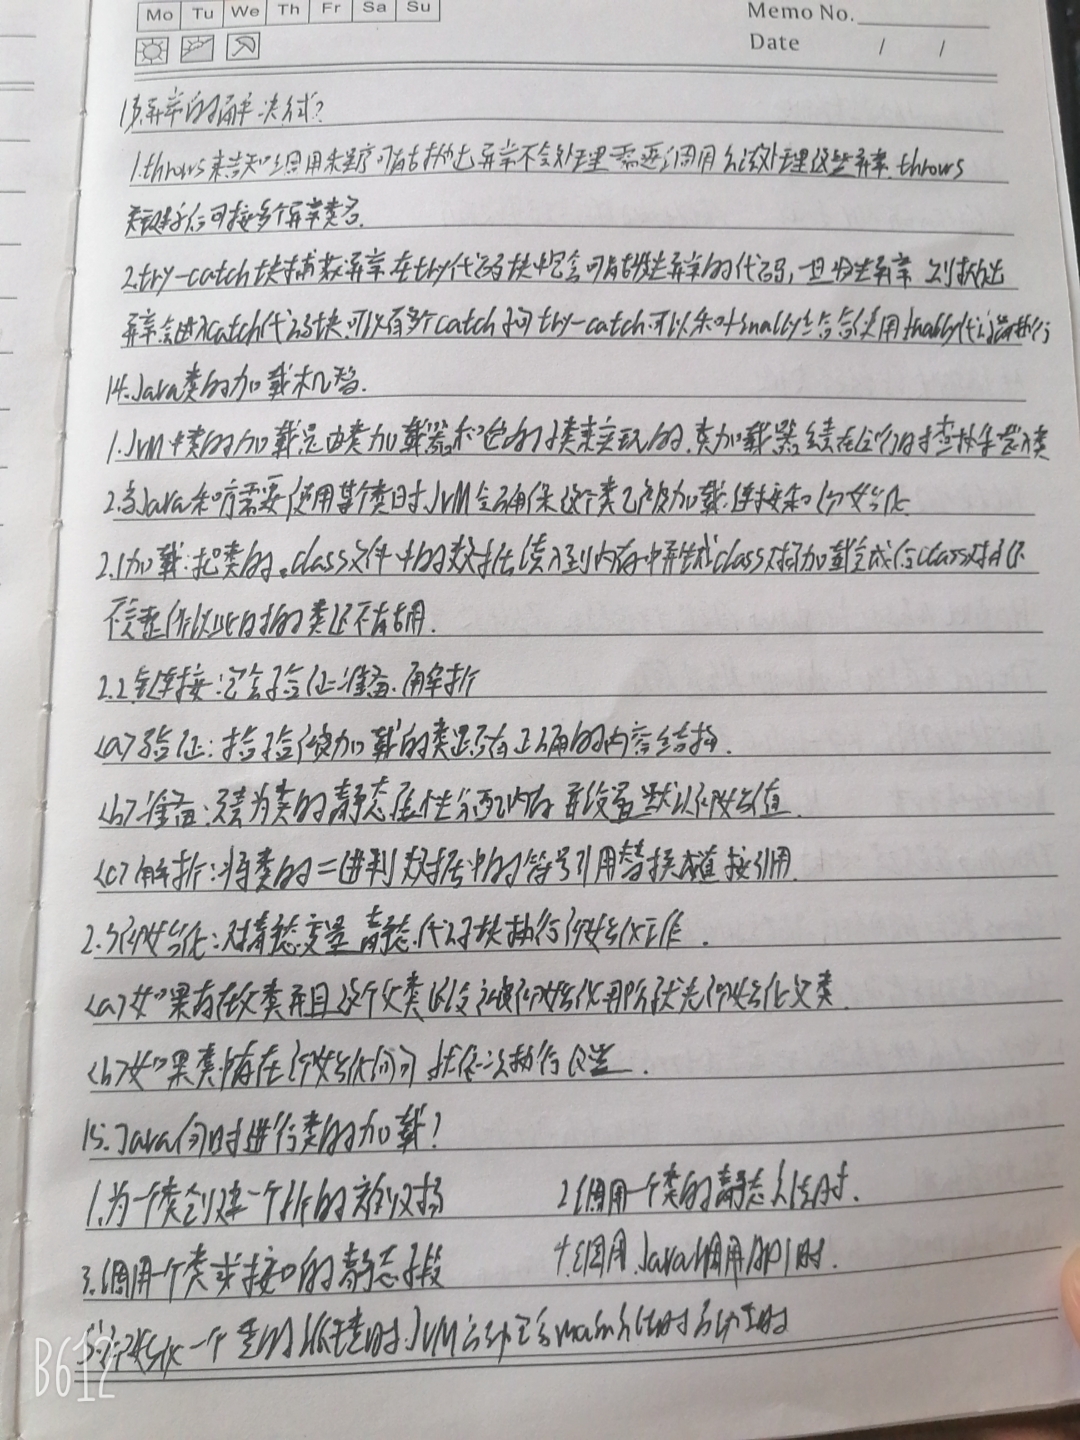 Mo Tu We Th Fr Sa Su
Memo No.
Date / /
13.异常的解决方式?
1.throws来告知调用者程序可能会抛出异常不会处理需要调用方法处理这些异常.throws
关键字后可接多个异常类名.
2.try-catch块捕获异常在try代码块中包含可能发生异常的代码,一旦发生异常 则抛出
异常会进入catch代码块可以有多个catch子句try-catch可以和finally结合使用finally代码需执行
14.Java类的加载机制.
1.JVM中类的加载是由类加载器和它的子类来实现的.类加载器负责在运行时查找和装入类
2.当Java程序需要使用某个类时,JVM会确保这个类已被加载.连接和初始化
2.1加载:把类的.class文件中的数据读入到内存中并生成class对象加载完成后class对象还
不完整所以此时的类还不可用.
2.2 连接:包含验证.准备.解析
<a>验证:检验被加载的类是否有正确的内部结构.
<b>准备:负责为类的静态属性分配内存并设置默认初始值
<c>解析:将类的二进制数据中的符号引用替换成直接引用.
2.3初始化:对静态变量 静态代码块执行初始化工作.
<a>如果存在父类并且这个父类还没被初始化那么就先初始化父类.
<b>如果类中存在初始化句 就依次执行 .
15.Java何时进行类的加载?
1.为一个类创建一个新的 对象
2.调用一个类的静态方法时.
3.调用一个类或接口的静态字段
4.调用Java 调用API时.
5.初始化一个类的 类时.JVM启动包含main方法的启动类时
B612